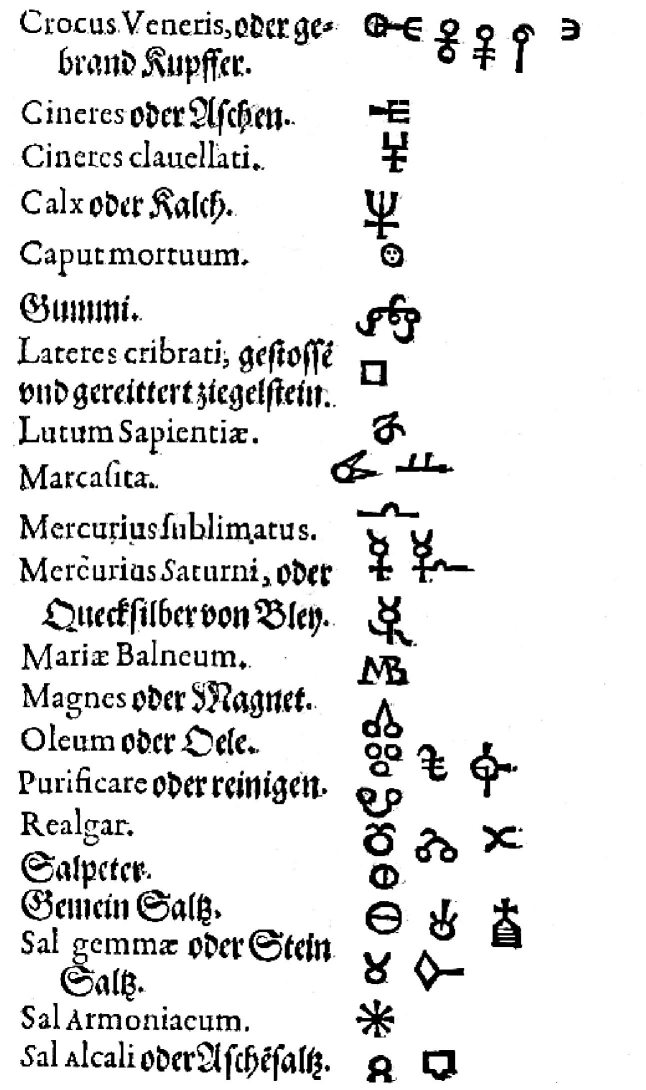 Crocus Veneris, oder ge⸗
brand Kupffer.
Cineres oder Aſchen.
Cineres clauellati.
Calx oder Kalch.
Caput mortuum.
Gummi.
Lateres cribrati, geſtoſſẽ
vnd gereittert ziegelſtein.
Lutum Sapientiæ.
Marcaſita.
Mercurius ſublimatus.
Mercurius Saturni, oder
Queckſilber von Bley.
Mariæ Balneum.
MB
Magnes oder Magnet.
Oleum oder Oele.
Purificare oder reinigen.
Realgar.
Salpeter.
Gemein Saltz.
Sal gemmæ oder Stein
Saltz.
Sal Armoniacum.
Sal Alcali oder Aſchẽſaltz.